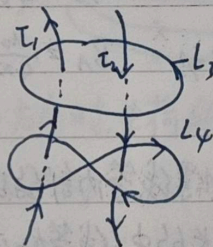 I₁
I₂
L₃
L₄